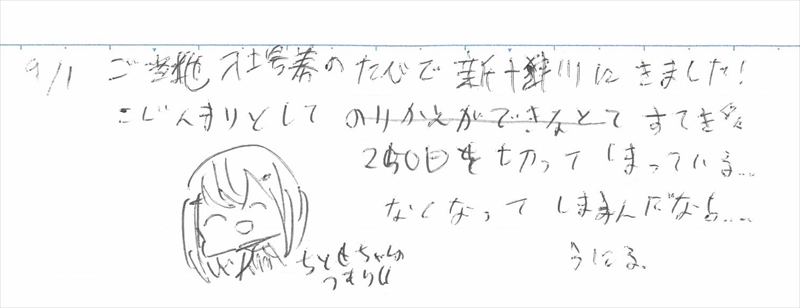 9/1 ご当地 社号巻のたびで 新十津川にきました!
こじんまりとして のりかえができなくて すてき
250日を切ってしまっている...
なくなってしまうんだなぁ....
うにる
ちとせちゃんの
つもり